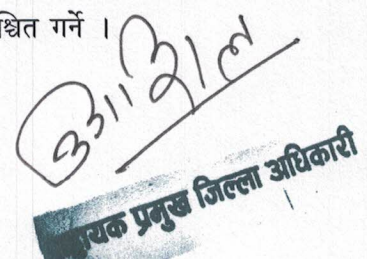 श्चित गर्ने ।
ायक प्रमुख जिल्ला अधिकारी